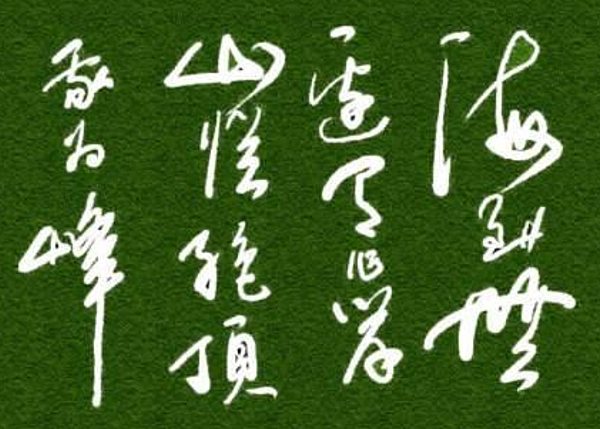 海到無
邊天作岸
山絕頂
我為峰